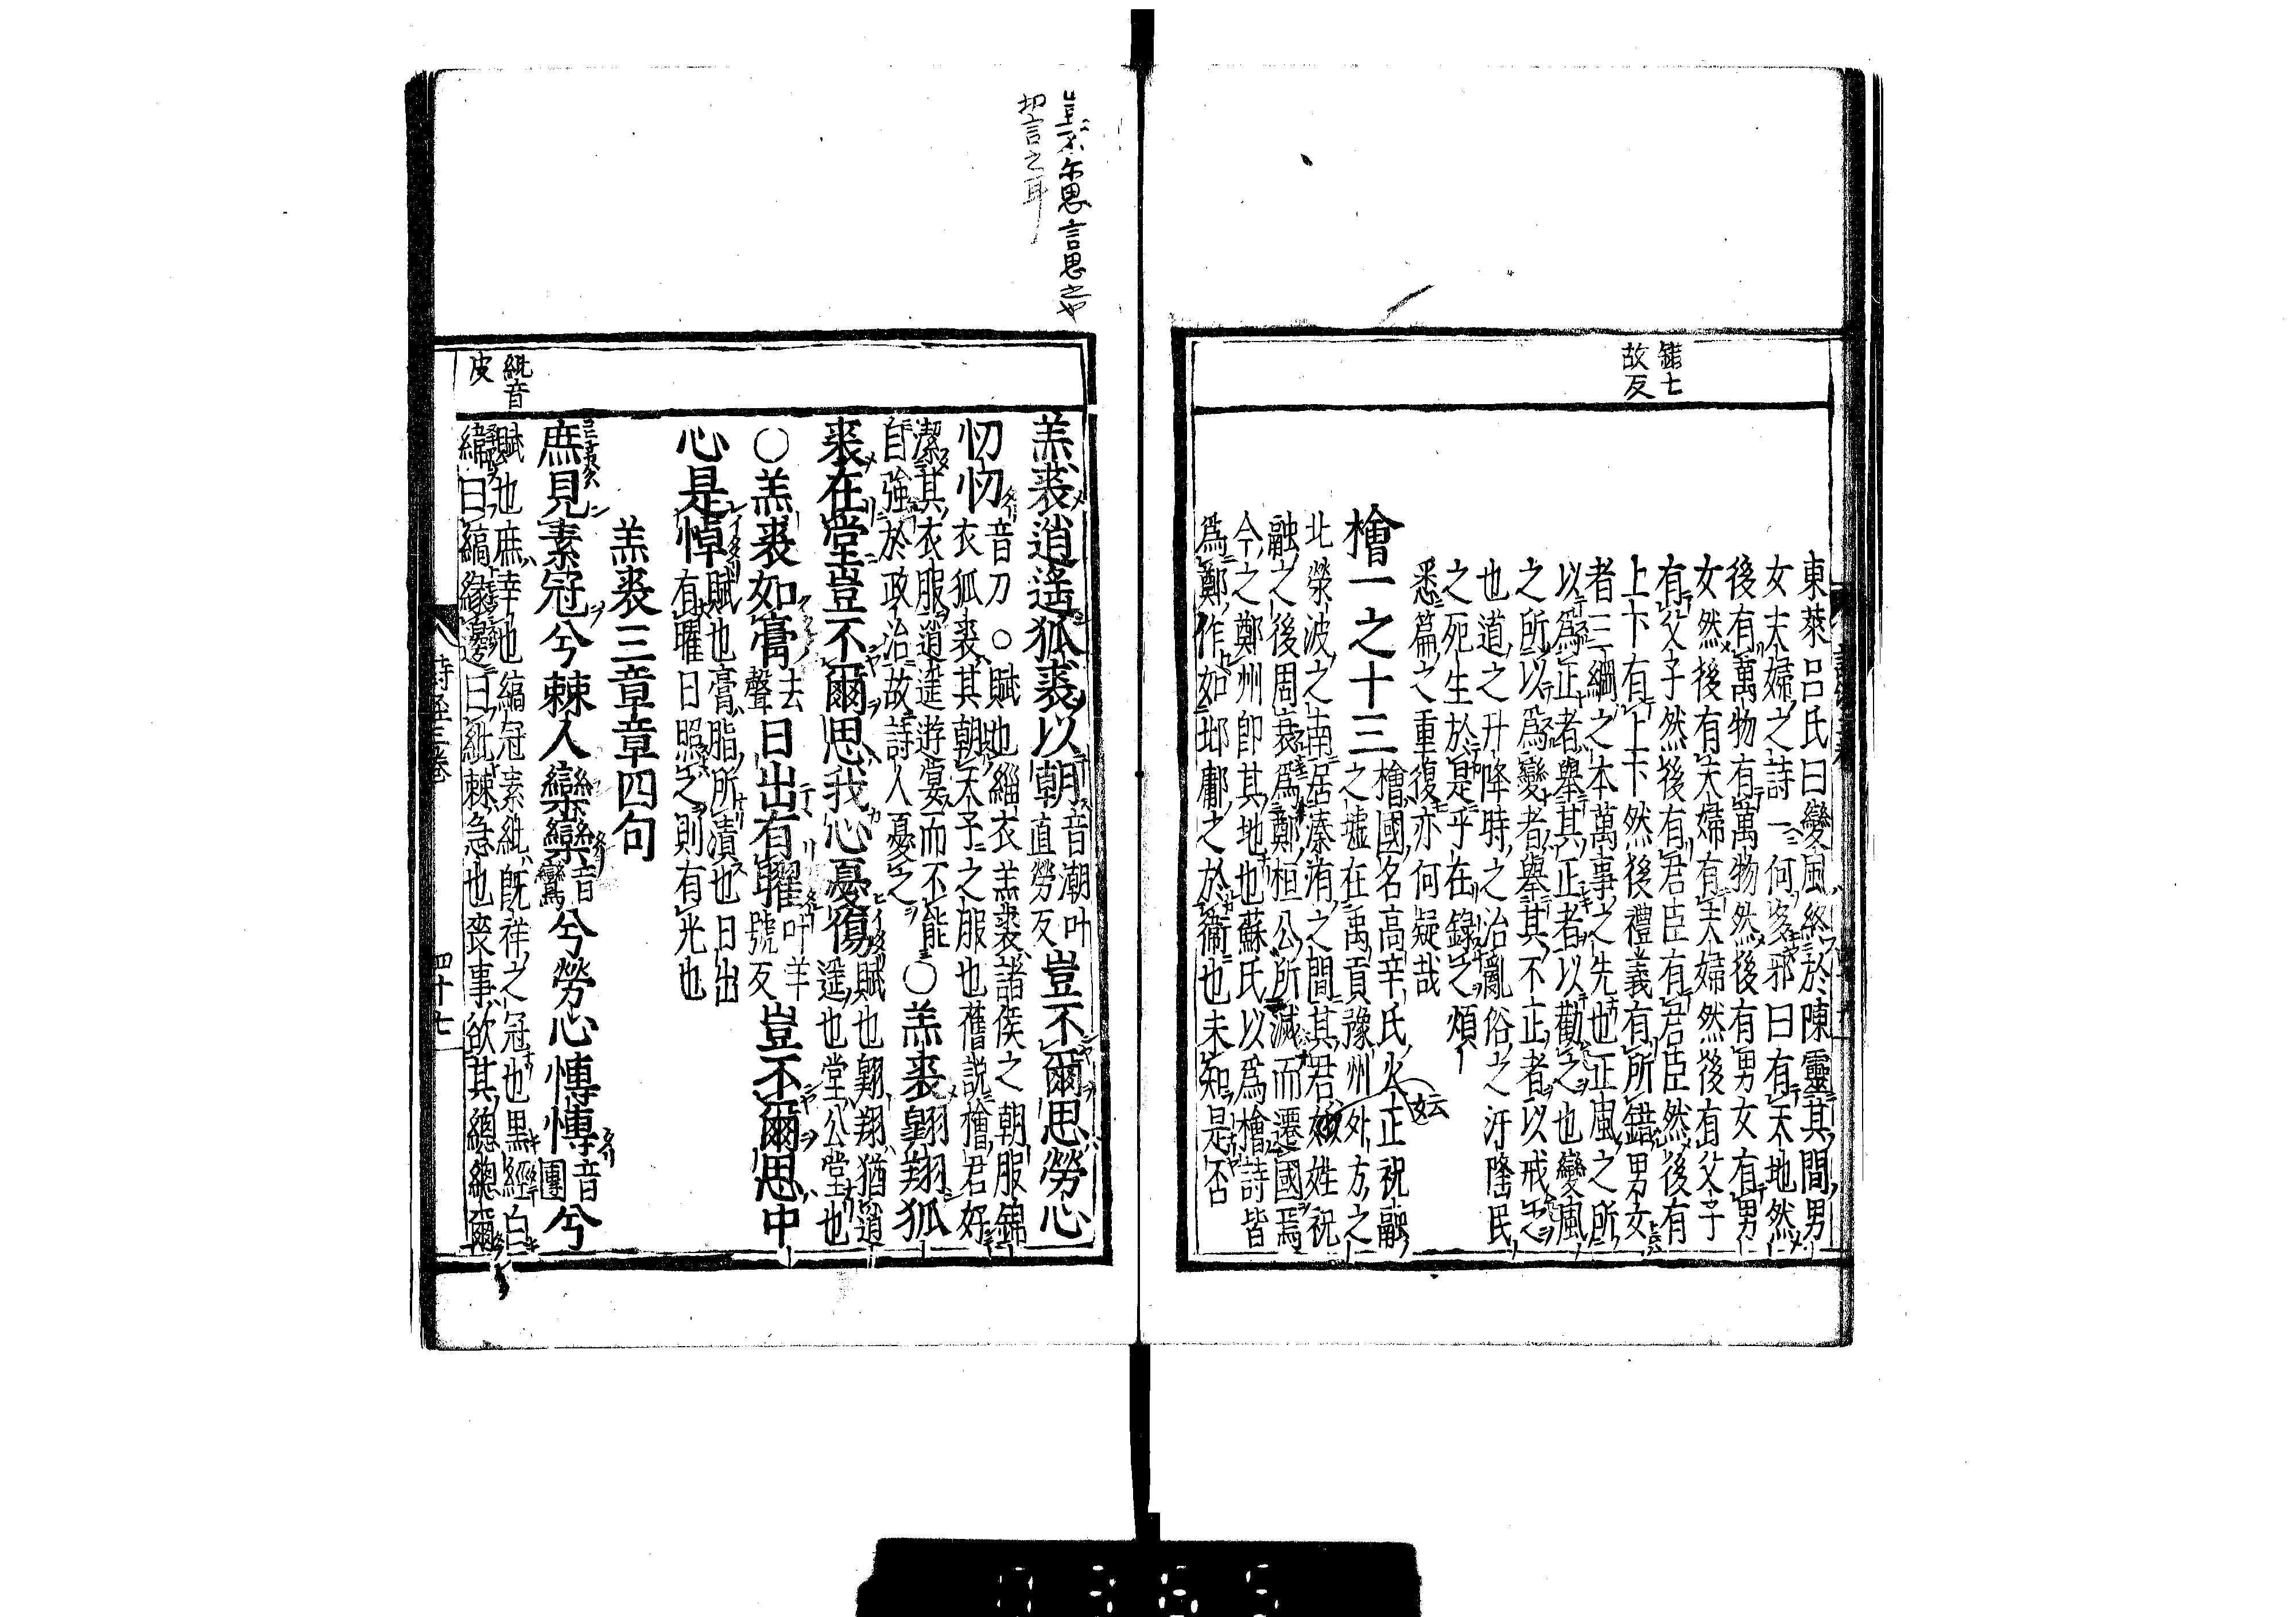 錯七
故反
東萊呂氏曰變風終於陳靈其間男
女夫婦之詩一何多邪曰有天地然
後有萬物有萬物然後有男女有男
女然後有夫婦有夫婦然後有父子
有父子然後有君臣有君臣然後有
上下有上下然後禮義有所錯男女
者三綱之本萬事之先也正風之所
以爲正者舉其正者以勸之也變風
之所以爲變者舉其不正者以戒之
也道之升降時之治亂俗之汙隆民
之死生於是乎在錄之煩
悉篇之重復亦何疑哉
檜一之十三
檜國名高辛氏火正祝融
之墟在禹貢豫州外方之
北滎波之南居溱洧之間其君妘姓祝
融之後周衰爲鄭桓公所滅而遷國焉
今之鄭州卽其地也蘇氏以爲檜詩皆
爲鄭作如邶鄘之於衞也未知是否
妘
豈不尔思言思之也
切言之耳
羔裘逍遙狐裘以朝音潮叶直勞反豈不爾思勞心
忉忉音刀○賦也緇衣羔裘諸侯之朝服錦
衣狐裘其朝天子之服也舊說檜君好
潔其衣服逍遥遊宴而不能
自強於政治故詩人憂之
○羔裘翺翔狐
裘在堂豈不爾思我心憂傷賦也翺翔猶逍
遥也堂公堂也
○羔裘如膏去聲日出有曜叶羊號反豈不爾思中
心是悼賦也膏脂所漬也日出
有曜日照之則有光也
羔裘三章章四句
庶見素冠兮棘人欒欒音鸞兮勞心慱慱音團兮
賦也庶幸也縞冠素紕旣祥之冠也黑經白
緯曰縞緣邊曰紕棘急也喪事欲其總總爾
紕音
皮
詩經三卷
四十七